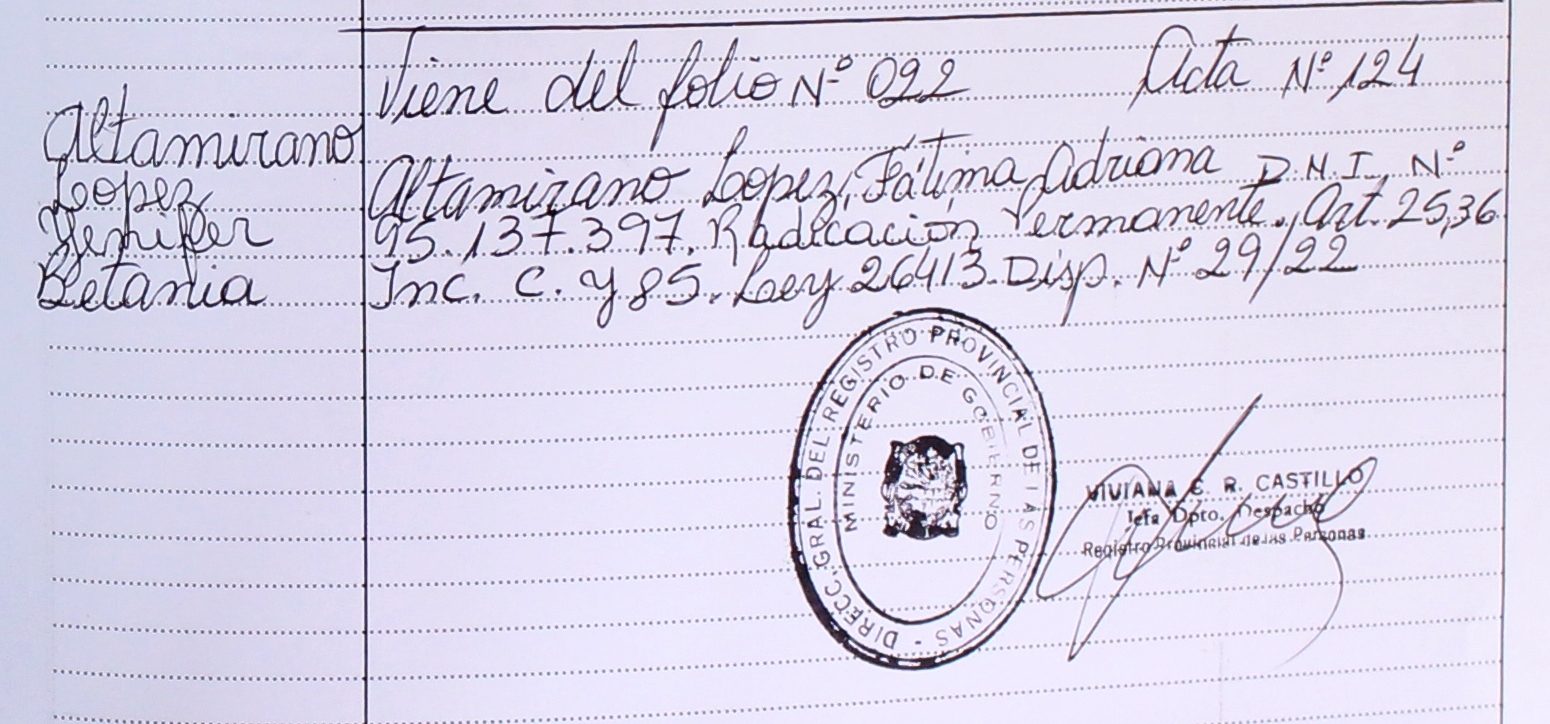 Viene del folio Nº 022 Acta Nº 124
Altamirano
Lopez
Yenifer
Betania
Altamirano Lopez, Fátima Adriana D.N.I. Nº
95.137.397. Radicación Permanente. Art. 25,36
Inc. C. y 85. Ley 26413. Disp. Nº 29/22
DIRECC. GRAL. DEL REGISTRO PROVINCIAL DE LAS PERSONAS -
MINISTERIO DE GOBIERNO
VIVIANA C. R. CASTILLO
Jefa Dpto. Despacho
Registro Provincial de las Personas